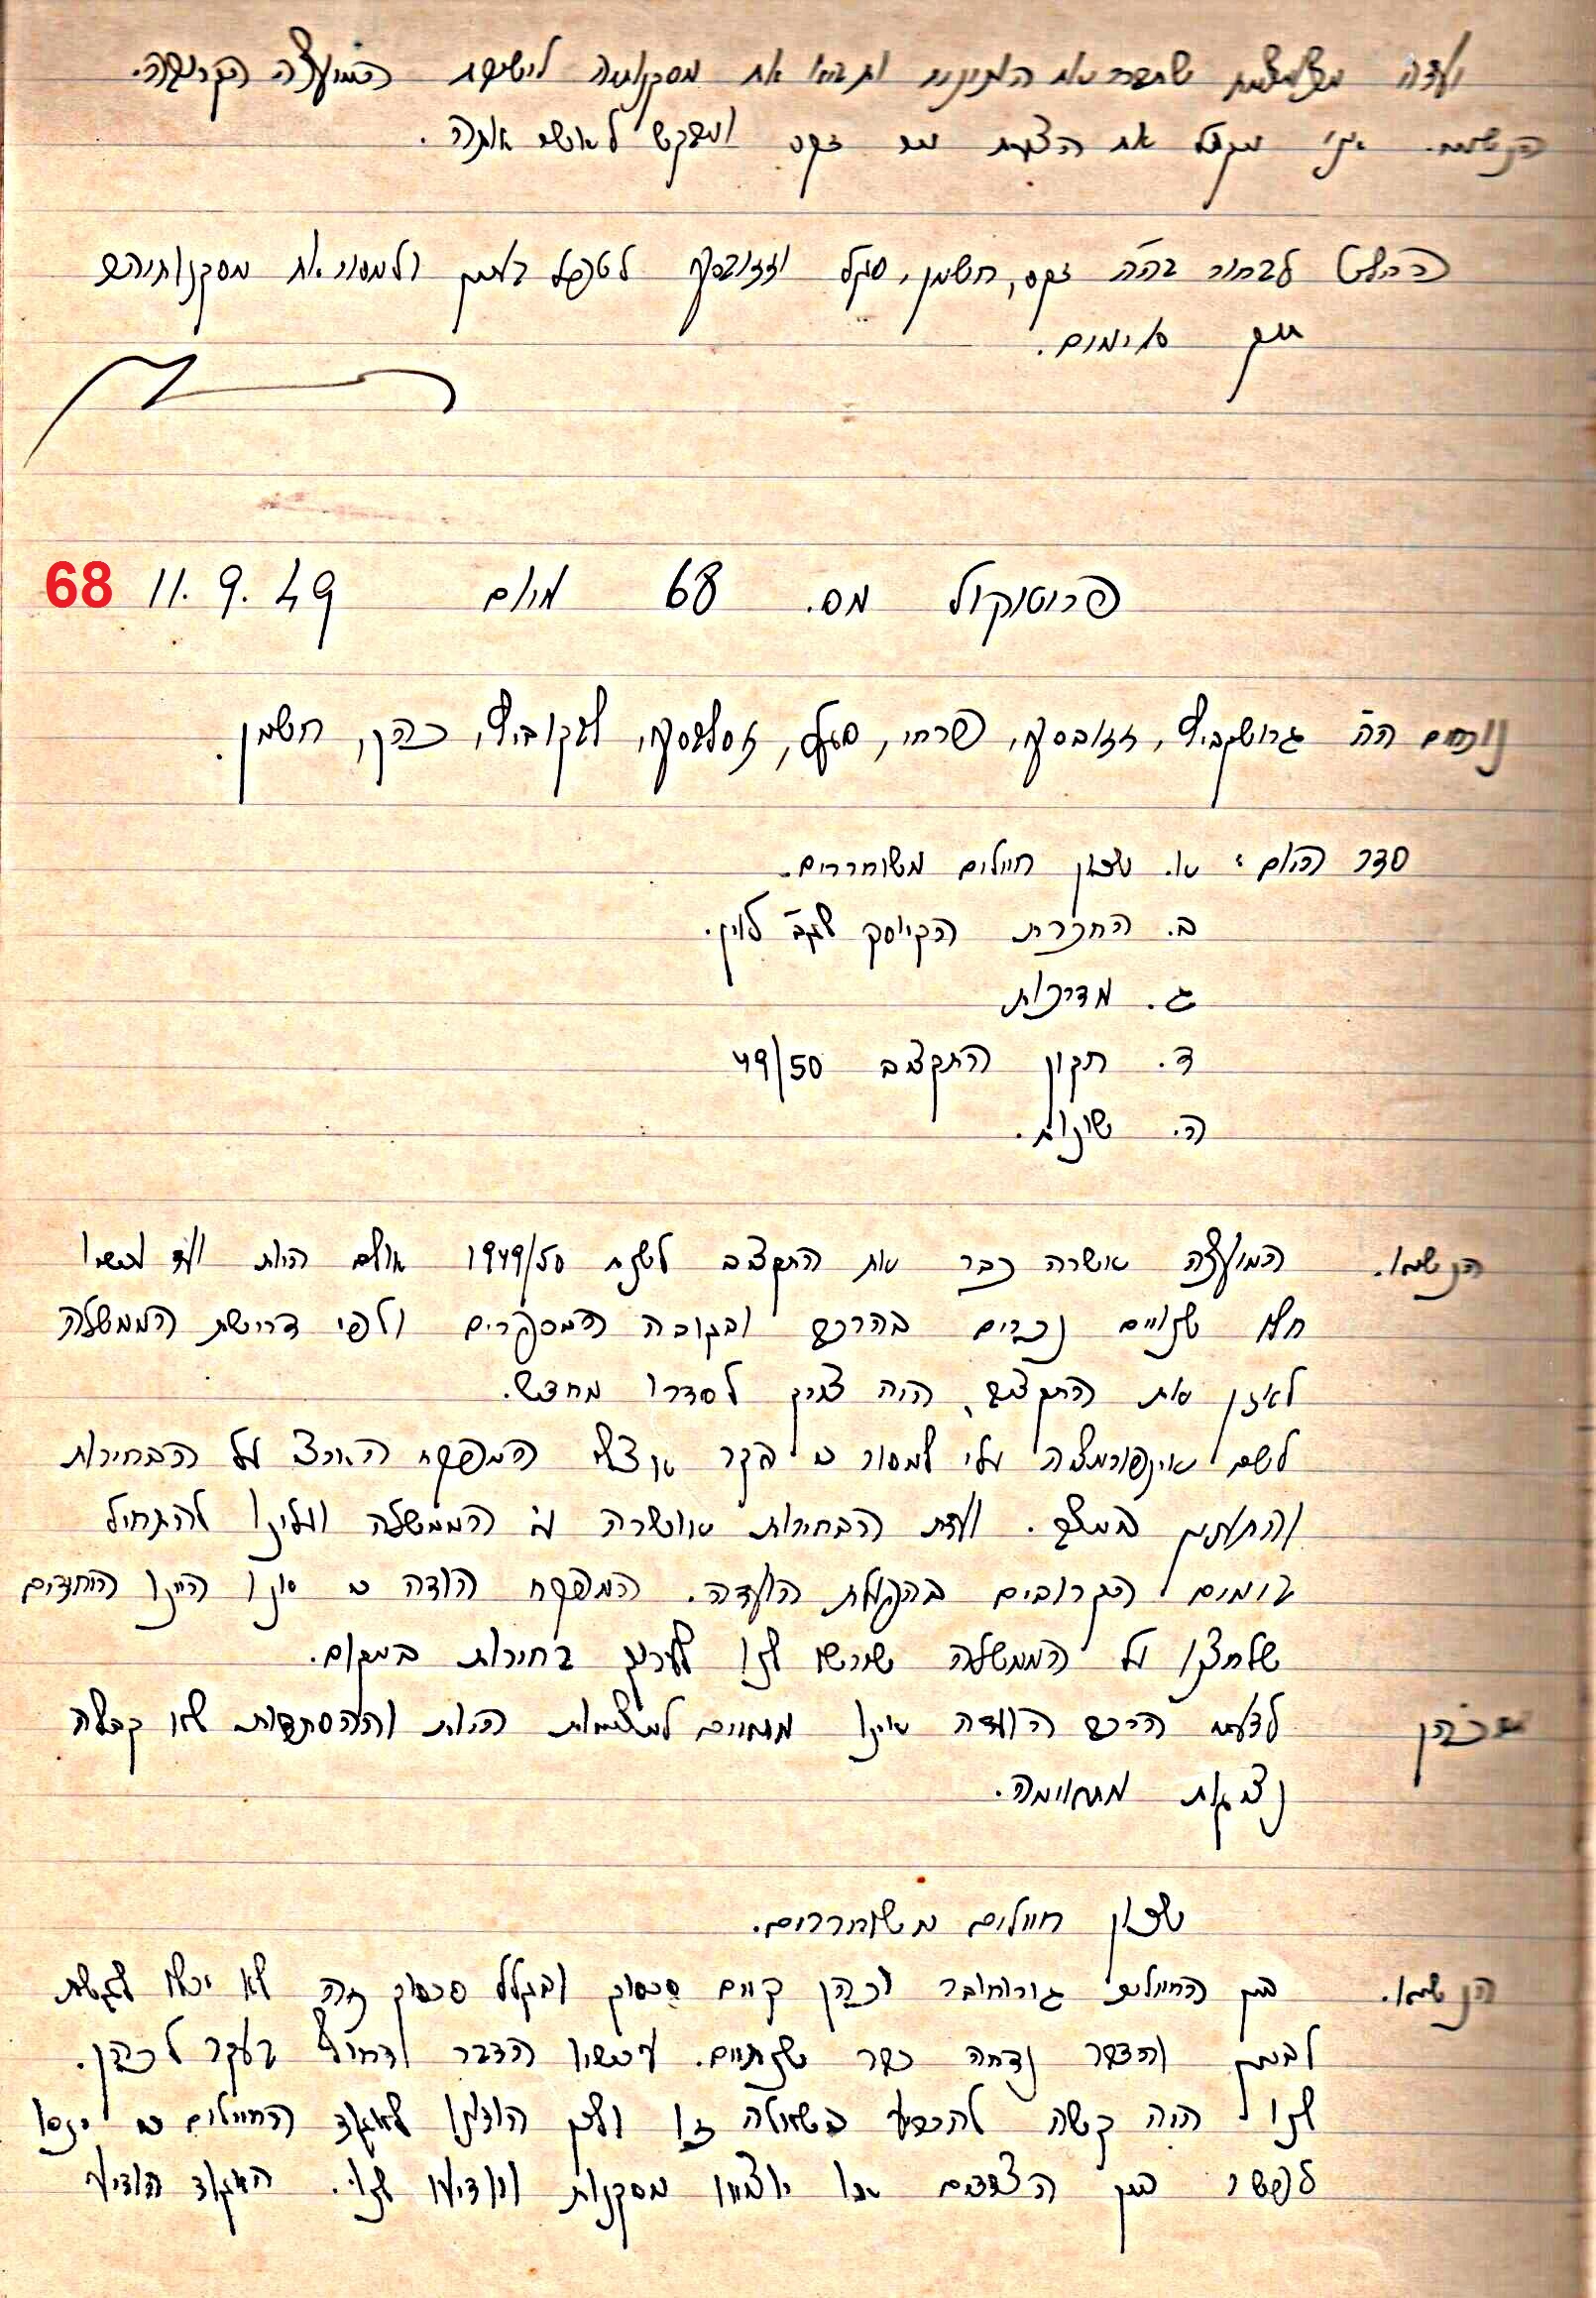 ועדה מצומצמת שתברר את הענינים ותביא את מסקנותיה לישיבת המועצה הקרובה.
הנשיא. אני מקבל את הצעת מר זקס ומבקש לאשר אותה.
הוחלט לבחור בה"ה זקס, חשמן, סגל וזזובסקי לטפל בענין ולמסור את מסקנותיהם
תוך יומים.
68 פרוטוקול מס. 68 מיום 11.9.49
נוכחים ה"ה גרושקביץ, זזובסקי, פרחי, סגל, זסלבסקי, יעקוביץ, כהן, חשמן.
סדר היום: א. שכון חיילים משוחררים.
ב. החכרת הקיוסק לגב' לוין.
ג. מדרכות
ד. תקון התקציב 49/50
ה. שונות.
הנשיא. המועצה אשרה כבר את התקציב לשנת 1949/50 אולם היות ועד עכשיו
חלו שנויים נכרים בהרכב ובגובה המספרים ולפי דרישת הממשלה
לאזן את התקציב, היה צריך לסדרו מחדש.
לשם אינפורמציה עלי למסור כי בקר אצלנו המפקח הארצי על הבחירות
והתענין במצב. ועדת הבחירות אושרה ע"י הממשלה ועלינו להתחיל
בימים הקרובים בהקמת הועדה. המפקח הודה כי אנו היינו היחידים
שלחצנו על הממשלה שירשו לנו לערוך בחירות במקום.
כהן לדעתי הרכב הועדה אינו מתאים למציאות היות וההסתדרות לא קבלה
נציגות מתאימה.
שכון חיילים משוחררים.
הנשיא. בין החיילים גורוחובר וכהן קיים סכסוך ובגלל סכסוך זה לא יכלו לגשת
לבנין והדבר נדחה כבר שנתיים. עכשיו הדבר דחוף בעקר לכהן.
לנו היה קשה להכריע בשאלה זו ולכן הודענו לאגוד החיילים כי ינסו
לפשר בין הצדדים אנו יוציאו מסקנות ויודיעו לנו. האגוד הודיע